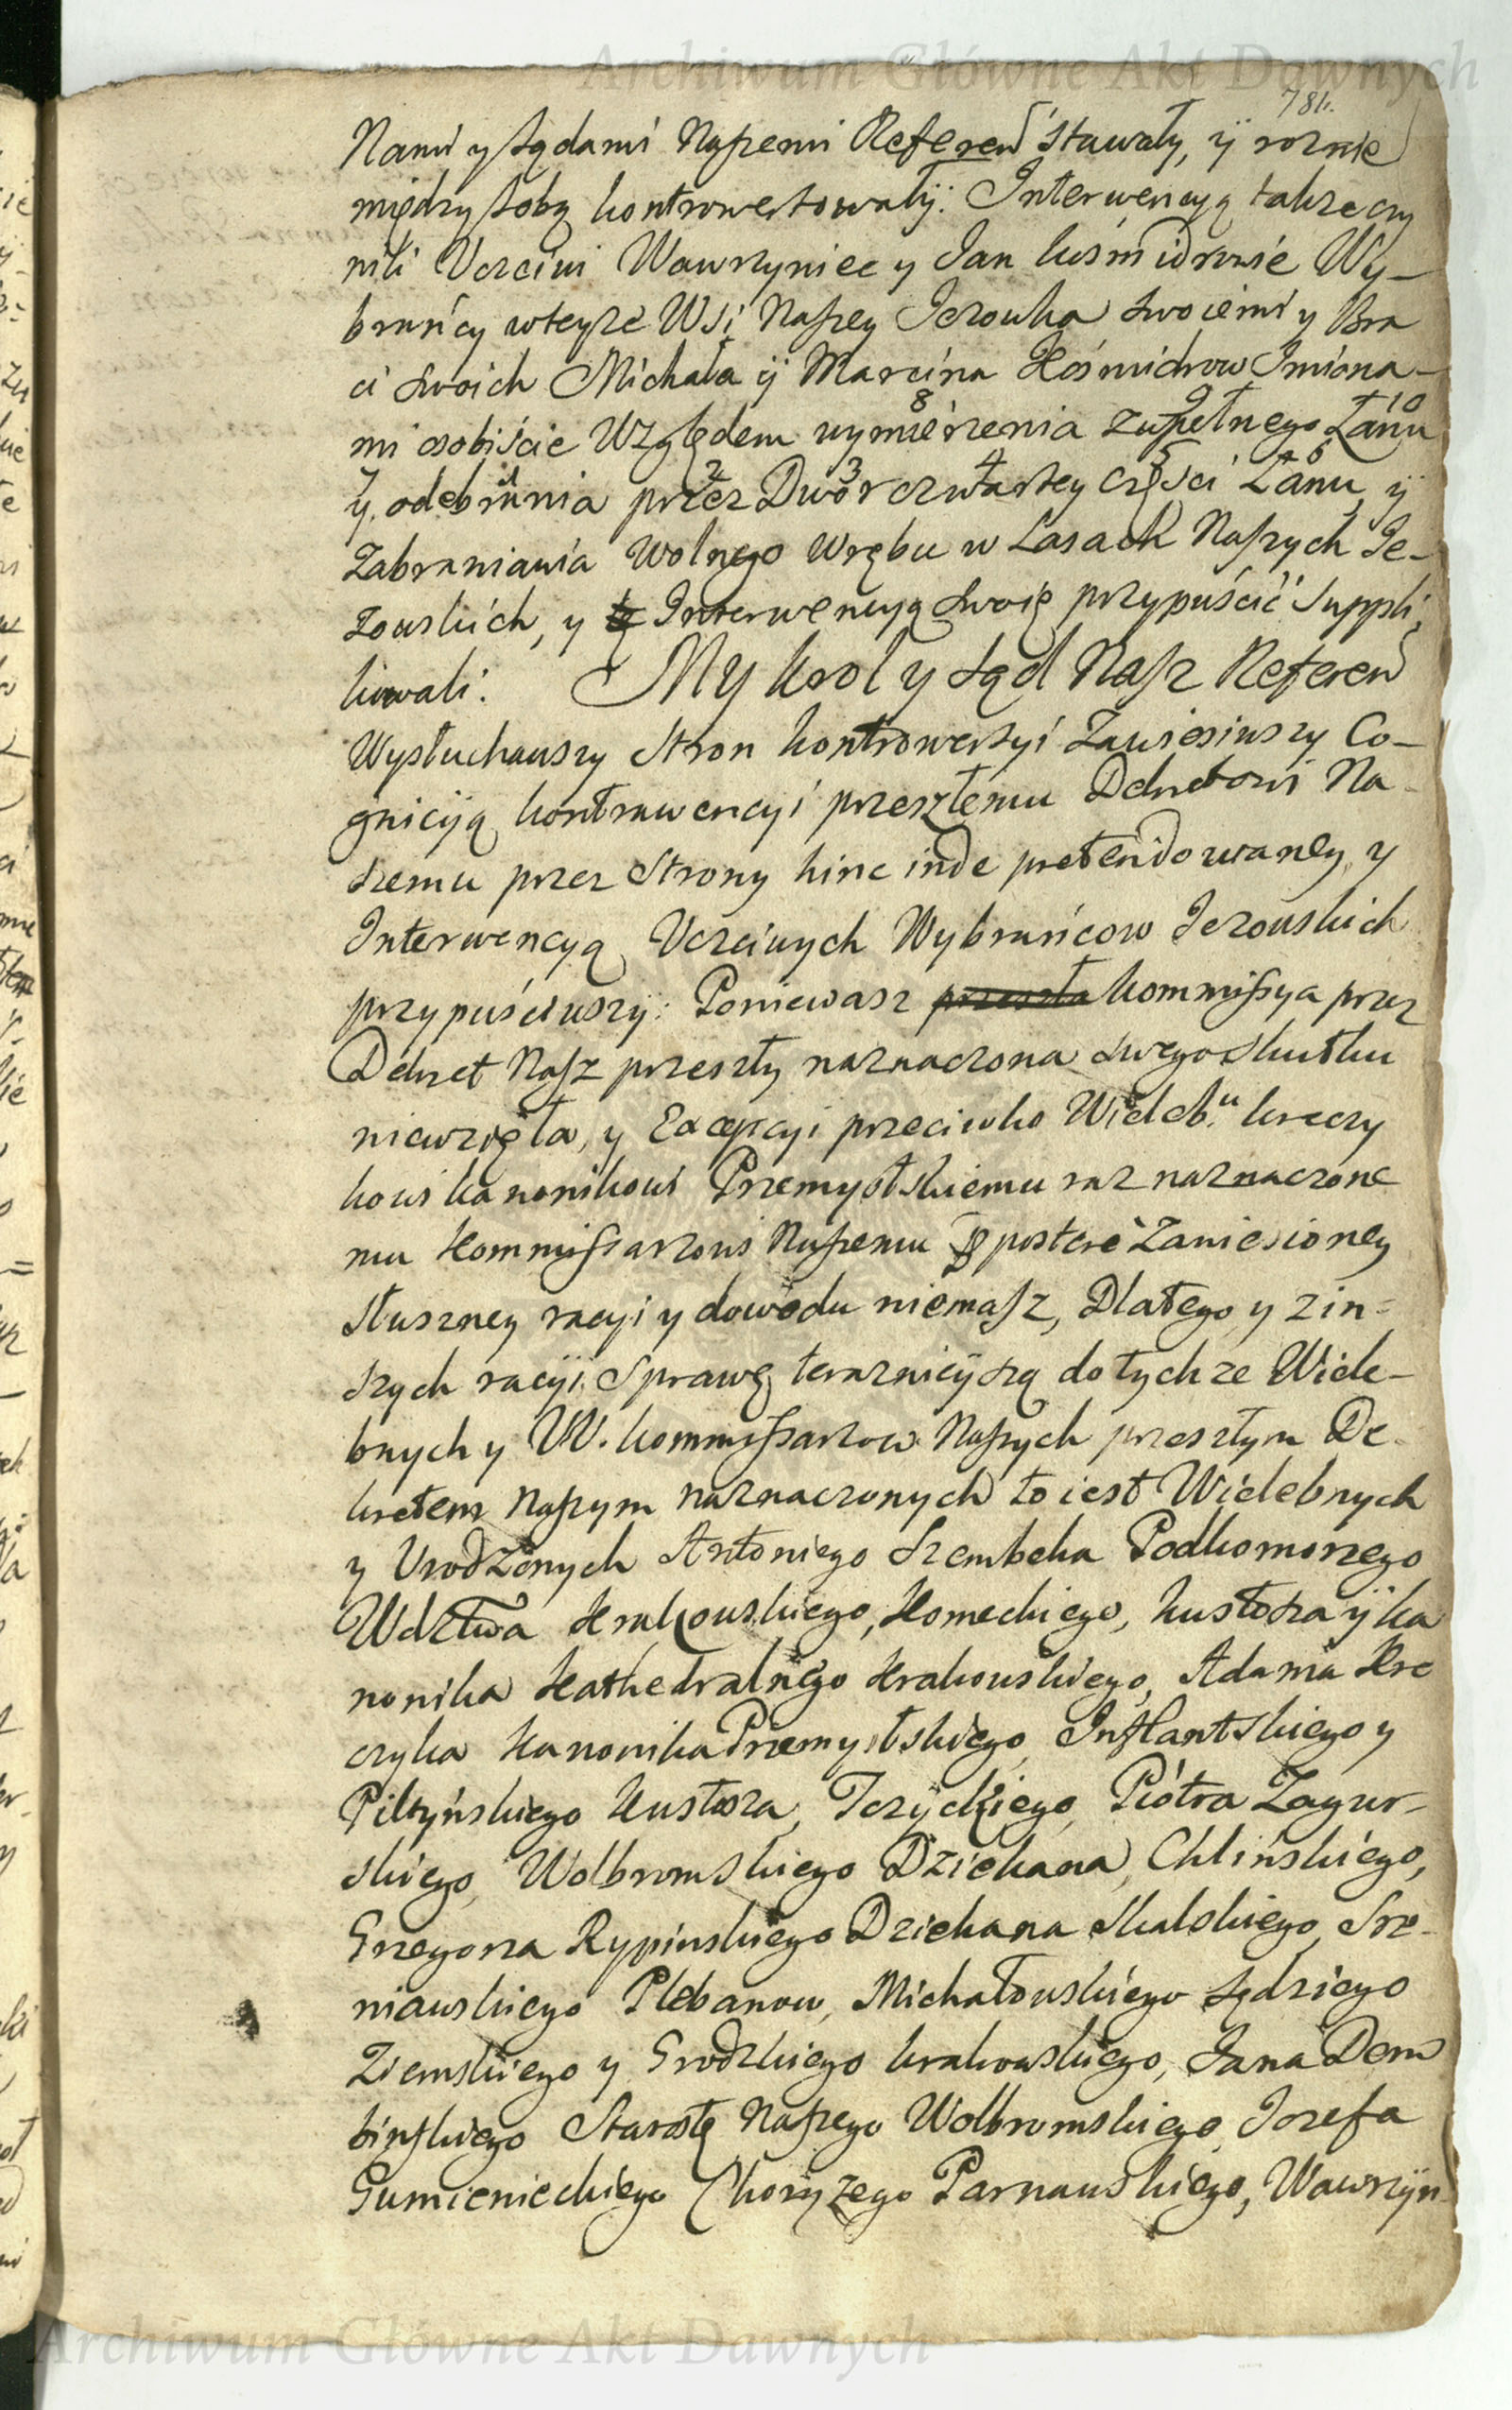 Archiwum Główne Akt Dawnych
781.
Nami y Sądami Naszemi Referen stawały, ÿ roznie
między sobą kontrowertowałÿ. Interwencyą także czy
nili Uczciwi Wawrzyniec y Jan kuśmidrowie Wy-
brańcy wteyże Wsi Naszey Jezowka swoiemi y Bra
ci swoich Michała ÿ Marcina Kośmidrow Imiona-
mi osobiście Względem wymierzenia zupełnego Łanu
8 9 10
y odebrania przez Dwór czwartey części Łanu, ÿ
7 1 2 3 4 5 6
Zabraniania Wolnego Wrębu w Lasach Naszych Je-
zowskich, y Interwencyą swoię przypuścić Suppli
kowali. My Krol y Sąd Nasz Referen
Wysłuchawszy Stron kontrowersyi Zawiesiwszy Co-
gnicÿą kontrawencyi przeszłemu Dekretowi Na-
szemu przez Strony hinc inde pretendowaney, y
Interwencyą Uczciwych Wybrańcow Jezowskich
przypuściwszÿ: Poniewasz przeszła kommissya przez
Dekret Nasz przeszły naznaczona swego skutku
niewzięła, y Excepcyi przeciwko Wieleb.u kreczy
kowi kanonikowi Przemyślskiemu raz naznaczone
mu Kommissarzowi Naszemu postere Zaniesioney
słuszney racyi y dowodu niemasz, Dlatego y zin=
szych racÿi Sprawę teraznieÿszą do tychze Wiele-
bnych y W. kommissarzow Naszych przeszłym De-
kretem Naszym naznaczonych to iest Wielebnych
y Urodzonych Antoniego Szembeka Podkomorzego
Wdztwa Krakowskiego, Komeckiego, kustosza ÿ ka
nonika Kathedralnego Krakowskiego, Adama Kre
czyka Kanonika Przemyślskiego, Inflantskiego y
Piltyńskiego Kustosza, Jezyckiego, Piotra Zagur-
skiego, Wolbromskiego Dziekana, Chlińskiego,
Grzegorza Rypinskiego Dziekana Skalskiego, Srze-
niawskiego Plebanow, Michałowskiego Sędziego
Ziemskiego y Grodzkiego krakowskiego, Jana Dem
binskiego Starostę Naszego Wolbromskiego, Jozefa
Gumienieckiego Chorążego Parnawskiego, Wawrzÿn-
Archiwum Główne Akt Dawnych